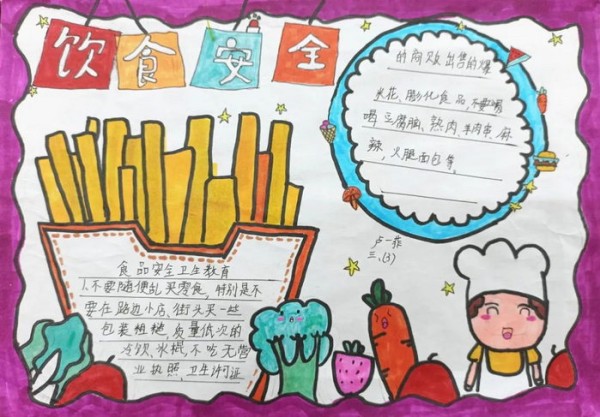 饮食安全
食品安全卫生教育
1.不要随便乱买零食,特别是不
要在路边小店、街头买一些
包装粗糙、质量低次的
冷饮、冰棍,不吃无营
业执照、卫生许可证
的商贩出售的爆
米花、膨化食品,不要喝
喝豆腐脑、熟肉、羊肉串、麻
辣,火腿面包等,
卢一菲
三、(3)